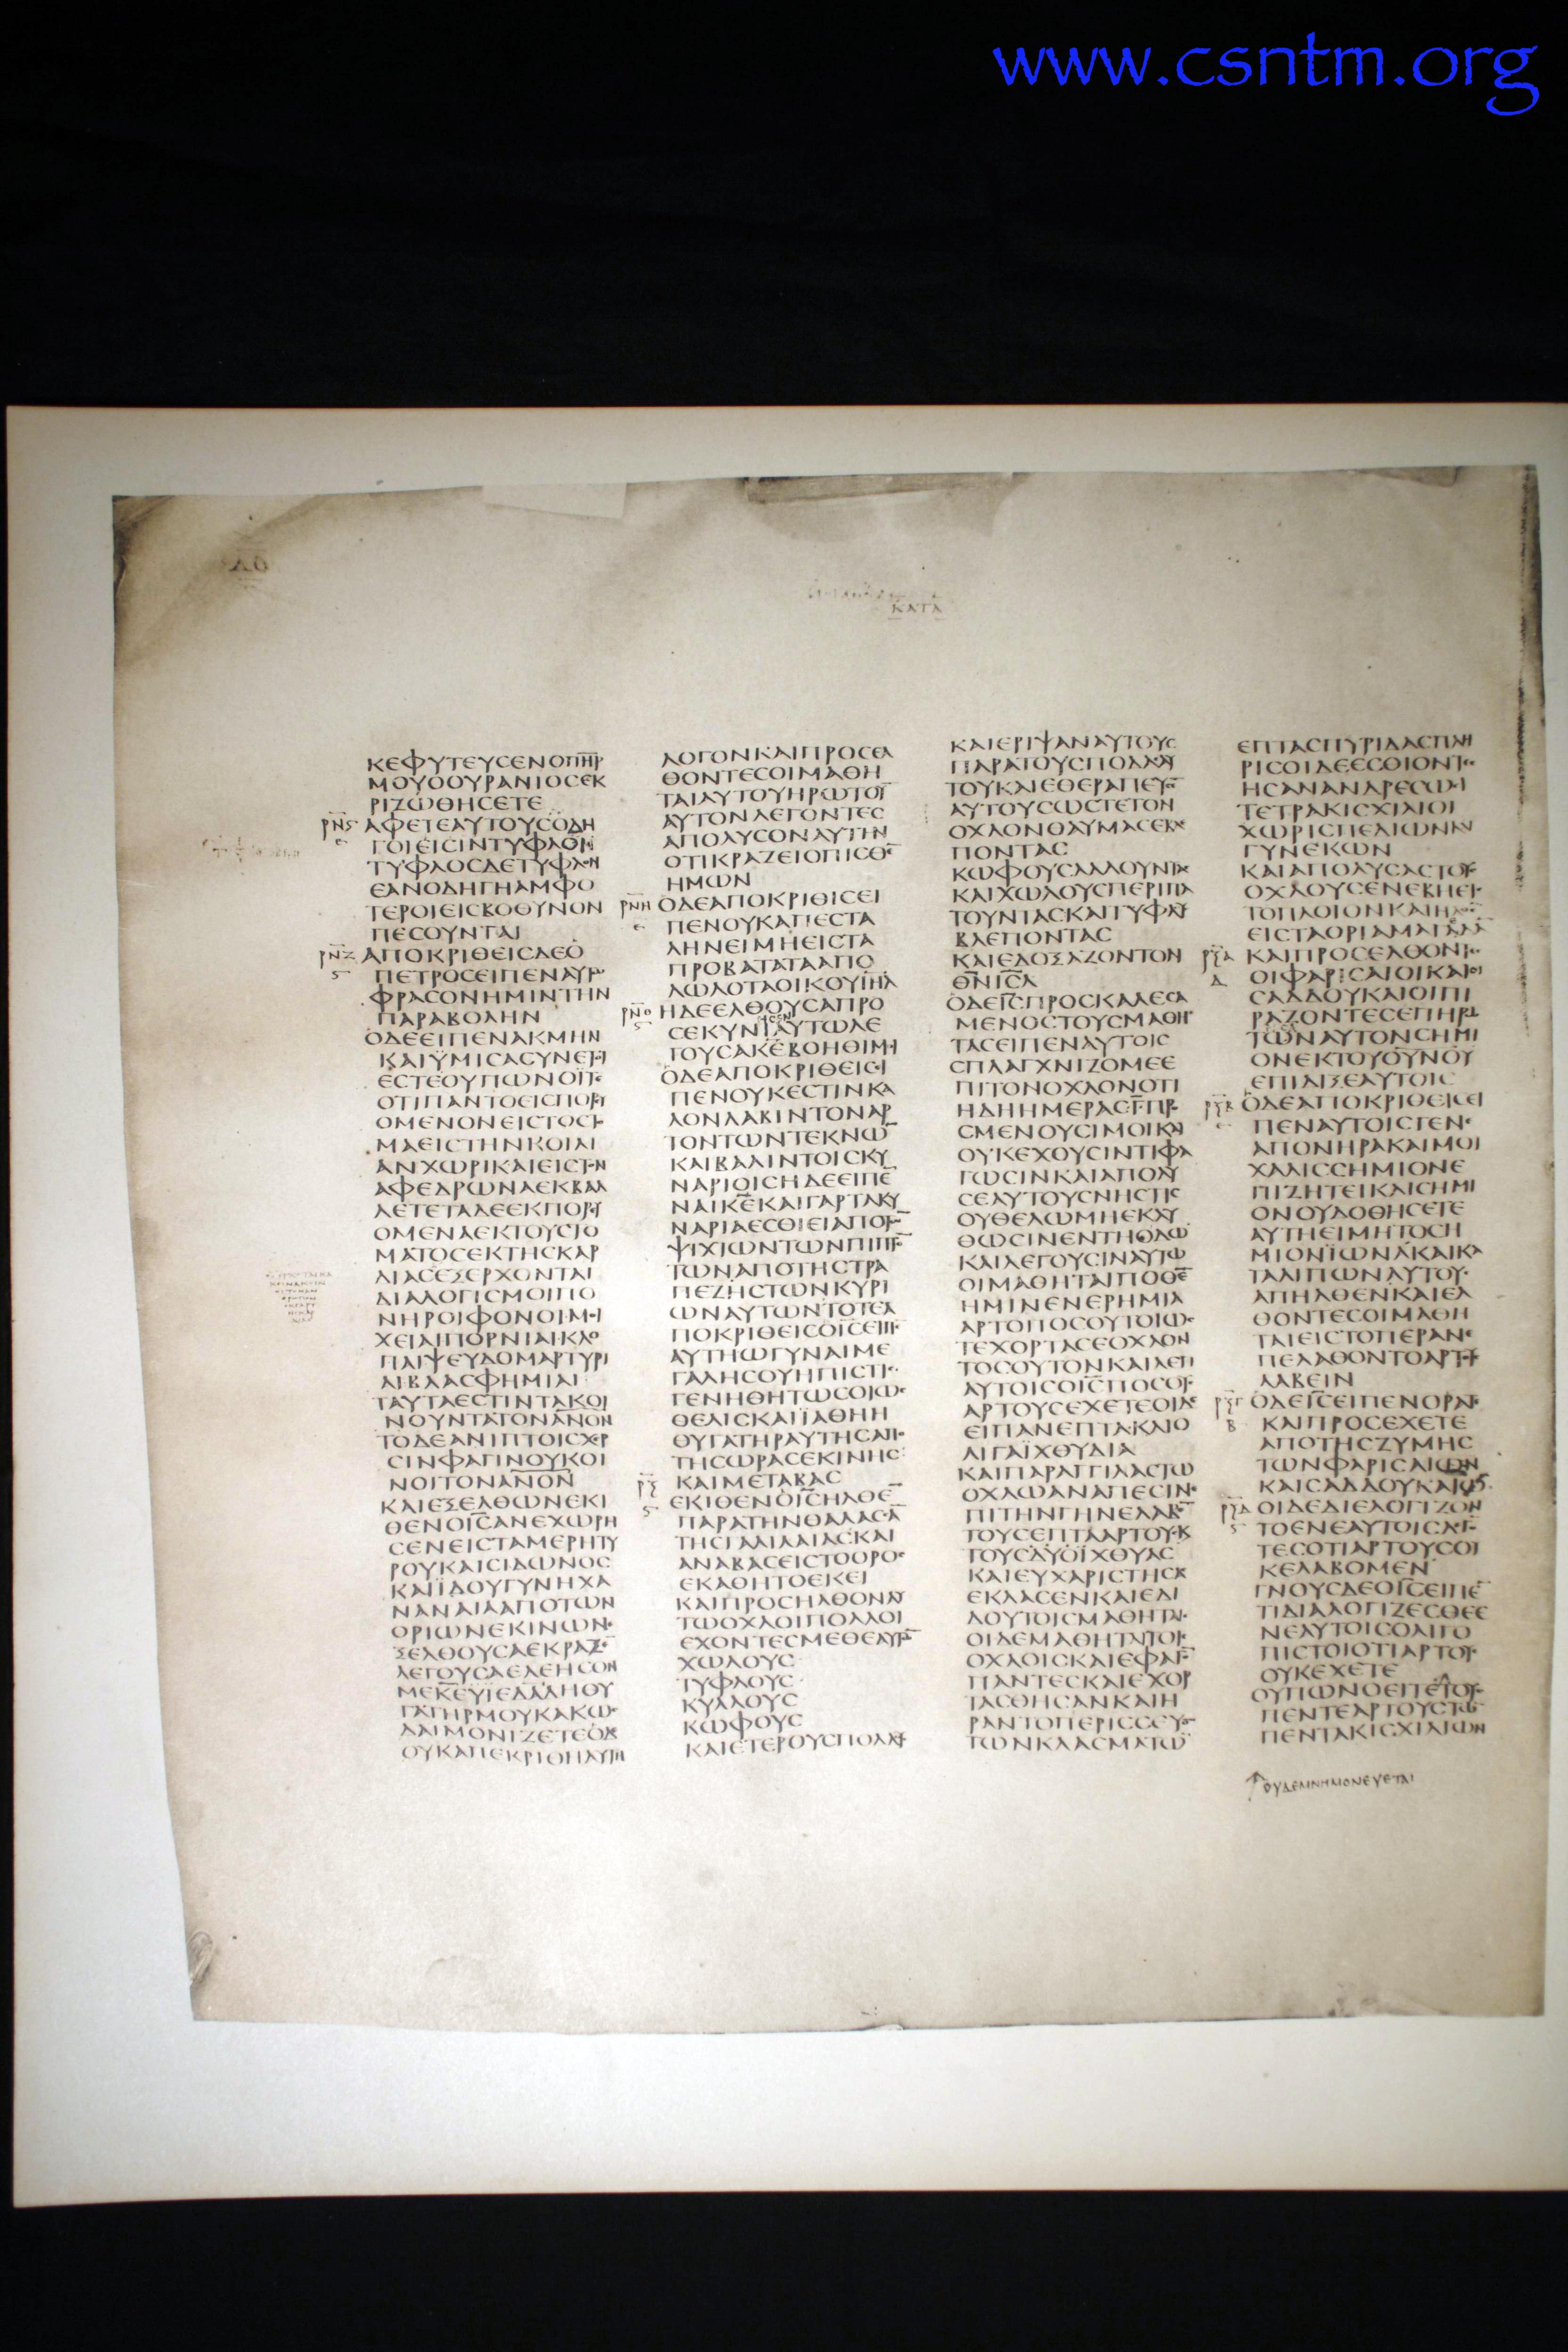 www.csntm.org
ΚΑΤΑ
ΚΕΦΥΤΕΥCΕΝΟΠΗΡ
ΜΟΥΟΟΥΡΑΝΙΟCΕΚ
ΡΙΖΩΘΗCΕΤΕ
ΡΝϚ ΑΦΕΤΕΑΥΤΟΥCΟΔΗ
ΓΟΙΕΙCΙΝΤΥΦΛΟΙ
ΤΥΦΛΟCΔΕΤΥΦΛΟΝ
ΕΑΝΟΔΗΓΗΑΜΦΟ
ΤΕΡΟΙΕΙCΒΟΘΥΝΟΝ
ΠΕCΟΥΝΤΑΙ
ΡΝΖ ΑΠΟΚΡΙΘΕΙCΔΕΟ
Ϛ ΠΕΤΡΟCΕΙΠΕΝΑΥΤΩ
ΦΡΑCΟΝΗΜΙΝΤΗΝ
ΠΑΡΑΒΟΛΗΝ
ΟΔΕΕΙΠΕΝΑΚΜΗΝ
ΚΑΙΫΜΙCΑCΥΝΕΤΟΙ
ΕCΤΕΟΥΠΩΝΟΪΤΕ
ΟΤΙΠΑΝΤΟΕΙCΠΟΡΥ
ΟΜΕΝΟΝΕΙCΤΟCΤΟ
ΜΑΕΙCΤΗΝΚΟΙΛΙ
ΑΝΧΩΡΙΚΑΙΕΙCΤΟΝ
ΑΦΕΔΡΩΝΑΕΚΒΑΛ
ΛΕΤΕΤΑΔΕΕΚΠΟΡΥ
ΟΜΕΝΑΕΚΤΟΥCΤΟ
ΜΑΤΟCΕΚΤΗCΚΑΡ
ΔΙΑCΕΞΕΡΧΟΝΤΑΙ
ΔΙΑΛΟΓΙCΜΟΙΠΟ
ΝΗΡΟΙΦΟΝΟΙΜΟΙ
ΧΕΙΑΙΠΟΡΝΙΑΙΚΛΟ
ΠΑΙΨΕΥΔΟΜΑΡΤΥΡΙ
ΑΙΒΛΑCΦΗΜΙΑΙ
ΤΑΥΤΑΕCΤΙΝΤΑΚΟΙ
ΝΟΥΝΤΑΤΟΝΑΝΟΝ
ΤΟΔΕΑΝΙΠΤΟΙCΧΕΡ
CΙΝΦΑΓΙΝΟΥΚΟΙ
ΝΟΙΤΟΝΑΝΟΝ
ΚΑΙΕΞΕΛΘΩΝΕΚΙ
ΘΕΝΟΙCΑΝΕΧΩΡΗ
CΕΝΕΙCΤΑΜΕΡΗΤΥ
ΡΟΥΚΑΙCΙΔΩΝΟC
ΚΑΙΪΔΟΥΓΥΝΗΧΑ
ΝΑΝΑΙΑΑΠΟΤΩΝ
ΟΡΙΩΝΕΚΙΝΩΝΕ
ΞΕΛΘΟΥCΑΕΚΡΑΖΕ
ΛΕΓΟΥCΑΕΛΕΗCΟΝ
ΜΕΚΕΥΪΕΔΑΔΗΘΥ
ΓΑΤΗΡΜΟΥΚΑΚΩC
ΔΑΙΜΟΝΙΖΕΤΕΟΔΕ
ΟΥΚΑΠΕΚΡΙΘΗΑΥΤΗ
ΛΟΓΟΝΚΑΙΠΡΟCΕΛ
ΘΟΝΤΕCΟΙΜΑΘΗ
ΤΑΙΑΥΤΟΥΗΡΩΤΟΥ
ΑΥΤΟΝΛΕΓΟΝΤΕC
ΑΠΟΛΥCΟΝΑΥΤΗΝ
ΟΤΙΚΡΑΖΕΙΟΠΙCΘΕ
ΗΜΩΝ
ΡΝΗ ΟΔΕΑΠΟΚΡΙΘΙCΕΙ
ΠΕΝΟΥΚΑΠΕCΤΑ
ΛΗΝΕΙΜΗΕΙCΤΑ
ΠΡΟΒΑΤΑΤΑΑΠΟ
ΛΩΛΟΤΑΟΙΚΟΥΙΗΛ
ΡΝΘ ΗΔΕΕΛΘΟΥCΑΠΡΟ
Ϛ CΕΚΥΝΙΑΥΤΩΛΕ
ΓΟΥCΑΚΕΒΟΗΘΙΜΟΙ
ΟΔΕΑΠΟΚΡΙΘΕΙCΕΙ
ΠΕΝΟΥΚΕCΤΙΝΚΑ
ΛΟΝΛΑΒΙΝΤΟΝΑΡ
ΤΟΝΤΩΝΤΕΚΝΩ
ΚΑΙΒΑΛΙΝΤΟΙCΚΥ
ΝΑΡΙΟΙCΗΔΕΕΙΠΕ
ΝΑΙΚΕΚΑΙΓΑΡΤΑΚΥ
ΝΑΡΙΑΕCΘΙΕΙΑΠΟΤΩ
ΨΙΧΙΩΝΤΩΝΠΙΠΤΟ
ΤΩΝΑΠΟΤΗCΤΡΑ
ΠΕΖΗCΤΩΝΚΥΡΙ
ΩΝΑΥΤΩΝΤΟΤΕΑ
ΠΟΚΡΙΘΕΙCΟΙCΕΙΠΕ
ΑΥΤΗΩΓΥΝΑΙΜΕ
ΓΑΛΗCΟΥΗΠΙCΤΙC
ΓΕΝΗΘΗΤΩCΟΙΩC
ΘΕΛΙCΚΑΙΪΑΘΗΗ
ΘΥΓΑΤΗΡΑΥΤΗCΑΠΟ
ΤΗCΩΡΑCΕΚΙΝΗC
ΡΞ ΚΑΙΜΕΤΑΒΑC
Ϛ ΕΚΙΘΕΝΟΙCΗΛΘΕ
ΠΑΡΑΤΗΝΘΑΛΑCCΑ
ΤΗCΓΑΛΙΛΑΙΑCΚΑΙ
ΑΝΑΒΑCΕΙCΤΟΟΡΟC
ΕΚΑΘΗΤΟΕΚΕΙ
ΚΑΙΠΡΟCΗΛΘΟΝΑΥ
ΤΩΟΧΛΟΙΠΟΛΛΟΙ
ΕΧΟΝΤΕCΜΕΘΕΑΥΤΩ
ΧΩΛΟΥC
ΤΥΦΛΟΥC
ΚΥΛΛΟΥC
ΚΩΦΟΥC
ΚΑΙΕΤΕΡΟΥCΠΟΛΛΟΥ
ΚΑΙΕΡΙΨΑΝΑΥΤΟΥC
ΠΑΡΑΤΟΥCΠΟΔΑΑΥ
ΤΟΥΚΑΙΕΘΕΡΑΠΕΥCΕ
ΑΥΤΟΥCΩCΤΕΤΟΝ
ΟΧΛΟΝΘΑΥΜΑCΕΒΛΕ
ΠΟΝΤΑC
ΚΩΦΟΥCΛΑΛΟΥΝΤΑ
ΚΑΙΧΩΛΟΥCΠΕΡΙΠΑ
ΤΟΥΝΤΑCΚΑΙΤΥΦΛΟΥ
ΒΛΕΠΟΝΤΑC
ΚΑΙΕΔΟΞΑΖΟΝΤΟΝ
ΘΝΙCΛ
ΟΔΕΙCΠΡΟCΚΑΛΕCΑ
ΜΕΝΟCΤΟΥCΜΑΘΗ
ΤΑCΕΙΠΕΝΑΥΤΟΙC
CΠΛΑΓΧΝΙΖΟΜΕΕ
ΠΙΤΟΝΟΧΛΟΝΟΤΙ
ΗΔΗΗΜΕΡΑCΓΠΡΟ
CΜΕΝΟΥCΙΜΟΙΚΑΙ
ΟΥΚΕΧΟΥCΙΝΤΙΦΑ
ΓΩCΙΝΚΑΙΑΠΟΛΥ
CΕΑΥΤΟΥCΝΗCΤΙC
ΟΥΘΕΛΩΜΗΕΚΛΥ
ΘΩCΙΝΕΝΤΗΟΔΩ
ΚΑΙΛΕΓΟΥCΙΝΑΥΤΩ
ΟΙΜΑΘΗΤΑΙΠΟΘΕ
ΗΜΙΝΕΝΕΡΗΜΙΑ
ΑΡΤΟΠΟCΟΥΤΟΙΩC
ΤΕΧΟΡΤΑCΕΟΧΛΟΝ
ΤΟCΟΥΤΟΝΚΑΙΛΕΓΙ
ΑΥΤΟΙCΟΙCΠΟCΟΥC
ΑΡΤΟΥCΕΧΕΤΕΟΙΔΕ
ΕΙΠΑΝΕΠΤΑΚΑΙΟ
ΛΙΓΑΪΧΘΥΔΙΑ
ΚΑΙΠΑΡΑΓΓΙΛΑCΤΩ
ΟΧΛΩΑΝΑΠΕCΙΝΕ
ΠΙΤΗΝΓΗΝΕΛΑΒΕ
ΤΟΥCΕΠΤΑΑΡΤΟΥCΚ
ΤΟΥCΔΥΟΪΧΘΥΑC
ΚΑΙΕΥΧΑΡΙCΤΗCΑC
ΕΚΛΑCΕΝΚΑΙΕΔΙ
ΔΟΥΤΟΙCΜΑΘΗΤΑΙC
ΟΙΔΕΜΑΘΗΤΑΙΤΟΙC
ΟΧΛΟΙCΚΑΙΕΦΑΓΟ
ΠΑΝΤΕCΚΑΙΕΧΟΡ
ΤΑCΘΗCΑΝΚΑΙΗ
ΡΑΝΤΟΠΕΡΙCCΕΥΟ
ΤΩΝΚΛΑCΜΑΤΩ
ΕΠΤΑCΠΥΡΙΔΑCΠΛΗ
ΡΙCΟΙΔΕΕCΘΙΟΝΤΕC
ΗCΑΝΑΝΔΡΕCΩCΙ
ΤΕΤΡΑΚΙCΧΙΛΙΟΙ
ΧΩΡΙCΠΕΔΙΩΝΚΑΙ
ΓΥΝΕΚΩΝ
ΚΑΙΑΠΟΛΥCΑCΤΟΥC
ΟΧΛΟΥCΕΝΕΒΗΕΙC
ΤΟΠΛΟΙΟΝΚΑΙΗΛΘΕΝ
ΕΙCΤΑΟΡΙΑΜΑΓΑΔΑ
ΡΞΑ ΚΑΙΠΡΟCΕΛΘΟΝΤΕC
Δ ΟΙΦΑΡΙCΑΙΟΙΚΑΙΟΙ
CΑΔΔΟΥΚΑΙΟΙΠΙ
ΡΑΖΟΝΤΕCΕΠΗΡΩ
ΤΩΝΑΥΤΟΝCΗΜΙ
ΟΝΕΚΤΟΥΟΥΝΟΥ
ΕΠΙΔΙΞΕΑΥΤΟΙC
ΡΞΒ ΟΔΕΑΠΟΚΡΙΘΕΙCΕΙ
ΠΕΝΑΥΤΟΙCΓΕΝΕ
ΑΠΟΝΗΡΑΚΑΙΜΟΙ
ΧΑΛΙCCΗΜΙΟΝΕ
ΠΙΖΗΤΕΙΚΑΙCΗΜΙ
ΟΝΟΥΔΟΘΗCΕΤΕ
ΑΥΤΗΕΙΜΗΤΟCΗ
ΜΙΟΝΪΩΝΑΚΑΙΚΑ
ΤΑΛΙΠΩΝΑΥΤΟΥC
ΑΠΗΛΘΕΝΚΑΙΕΛ
ΘΟΝΤΕCΟΙΜΑΘΗ
ΤΑΙΕΙCΤΟΠΕΡΑΝΕ
ΠΕΛΑΘΟΝΤΟΑΡΤΟΥC
ΛΑΒΕΙΝ
ΡΞΓ ΟΔΕΙCΕΙΠΕΝΟΡΑΤΕ
Β ΚΑΙΠΡΟCΕΧΕΤΕ
ΑΠΟΤΗCΖΥΜΗC
ΤΩΝΦΑΡΙCΑΙΩΝ
ΚΑΙCΑΔΔΟΥΚΑΙΩ
ΡΞΔ ΟΙΔΕΔΙΕΛΟΓΙΖΟΝ
Ϛ ΤΟΕΝΕΑΥΤΟΙCΛΕΓΟ
ΤΕCΟΤΙΑΡΤΟΥCΟΥ
ΚΕΛΑΒΟΜΕΝ
ΓΝΟΥCΔΕΟΙCΕΙΠΕ
ΤΙΔΙΑΛΟΓΙΖΕCΘΕΕ
ΝΕΑΥΤΟΙCΟΛΙΓΟ
ΠΙCΤΟΙΟΤΙΑΡΤΟΥC
ΟΥΚΕΧΕΤΕ
ΟΥΠΩΝΟΕΙΤΕΤΟΥC
ΠΕΝΤΕΑΡΤΟΥCΤΩ
ΠΕΝΤΑΚΙCΧΙΛΙΩΝ
ΟΥΔΕΜΝΗΜΟΝΕΥΕΤΑΙ